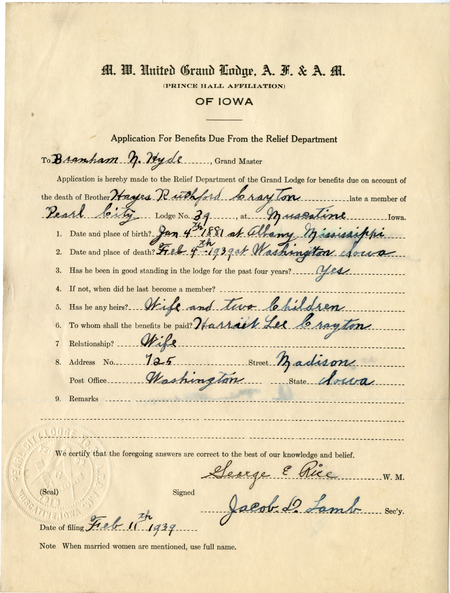 M. W. United Grand Lodge, A. F. & A. M.
(PRINCE HALL AFFILIATION)
OF IOWA
Application For Benefits Due From the Relief Department
To Bramham N. Hyde, Grand Master
Application is hereby made to the Relief Department of the Grand Lodge for benefits due on account of
the death of Brother Hayes Ruthford Crayton late a member of
Pearl City Lodge No. 39, at Muscatine Iowa.
1. Date and place of birth? Jan 4th 1881 at Albany, Mississippi
2. Date and place of death? Feb 9th 1939 at Washington Iowa
3. Has he been in good standing in the lodge for the past four years? Yes
4. If not, when did he last become a member?
5. Has he any heirs? Wife and two Children
6. To whom shall the benefits be paid? Harriet Lee Crayton
7 Relationship? Wife
8 Address No. 725 Street Madison
Post Office Washington State Iowa
9. Remarks
We certify that the foregoing answers are correct to the best of our knowledge and belief.
George E Rice W. M.
(Seal) Signed
Jacob D. Lamb Sec'y.
Date of filing Feb 11th 1939
Note When married women are mentioned, use full name.